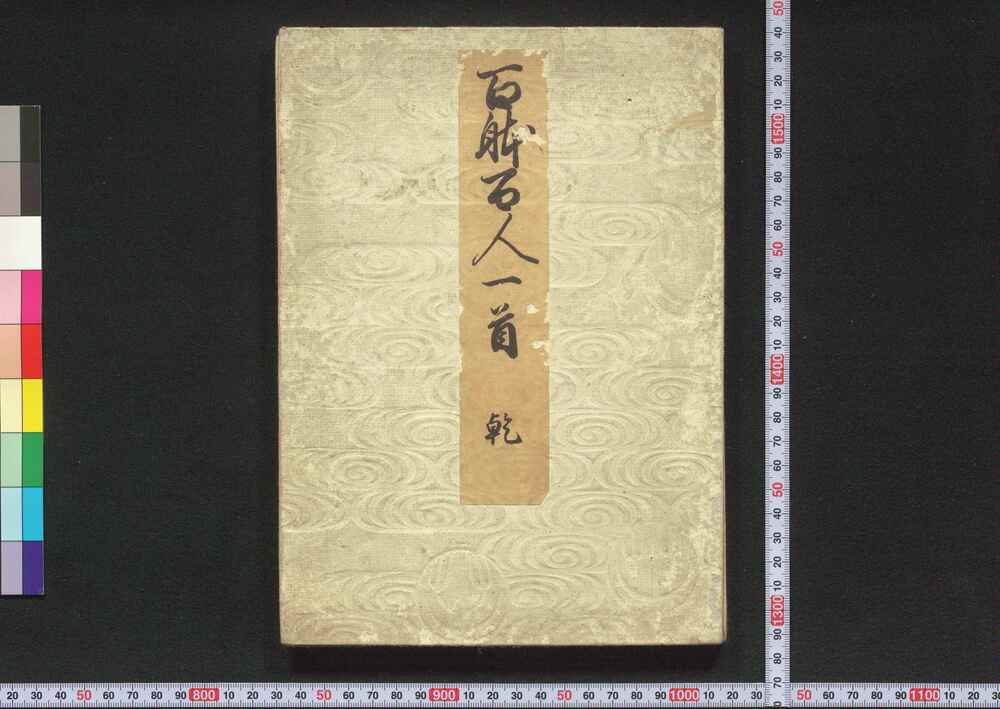 百躰百人一首 乾
50 40 30 20 10 1500 90 80 70 60 50 40 30 20 10 1400 90 80 70 60 50 40 30 20 10 1300 90 80 70
20 30 40 50 60 70 80 90 800 10 20 30 40 50 60 70 80 90 900 10 20 30 40 50 60 70 80 90 1000 10 20 30 50 60 70 80 90 1100 10 20